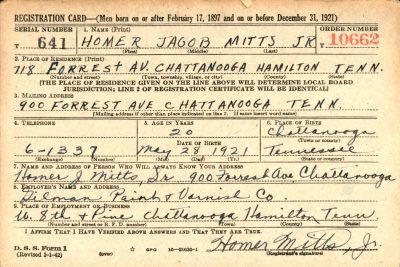 REGISTRATION CARD—(Men born on or after February 17, 1897 and on or before December 31, 1921)
SERIAL NUMBER 1. NAME (Print) ORDER NUMBER
T 641 HOMER JACOB MITTS JR. 10662
(First) (Middle) (Last)
2. PLACE OF RESIDENCE (Print)
FORREST AV. CHATTANOOGA HAMILTON TENN.
(Number and street) (Town, township, village, or city) (County) (State)
[THE PLACE OF RESIDENCE GIVEN ON THE LINE ABOVE WILL DETERMINE LOCAL BOARD
JURISDICTION; LINE 2 OF REGISTRATION CERTIFICATE WILL BE IDENTICAL]
3. MAILING ADDRESS
900 FORREST AV CHATTANOOGA TENN.
[Mailing address if other than place indicated on line 2. If same insert word same]
4. TELEPHONE 5. AGE IN YEARS 6. PLACE OF BIRTH
20 Chattanooga
DATE OF BIRTH (Town or county)
6-1337 May 28 1921 Tennessee
(Exchange) (Number) (Mo.) (Day) (Yr.) (State or country)
7. NAME AND ADDRESS OF PERSON WHO WILL ALWAYS KNOW YOUR ADDRESS
Homer J Mitts, Sr. 900 Forrest Ave Chattanooga
8. EMPLOYER'S NAME AND ADDRESS
Gilman Paint & Varnish Co.
9. PLACE OF EMPLOYMENT OR BUSINESS
W. 8th & Pine Chattanooga Hamilton Tenn
(Number and street or R. F. D. number) (Town) (County) (State)
I AFFIRM THAT I HAVE VERIFIED ABOVE ANSWERS AND THAT THEY ARE TRUE.
D. S. S. Form 1 GPO
(Revised 1-1-42) Homer Mitts, Jr.
(Registrant's signature)